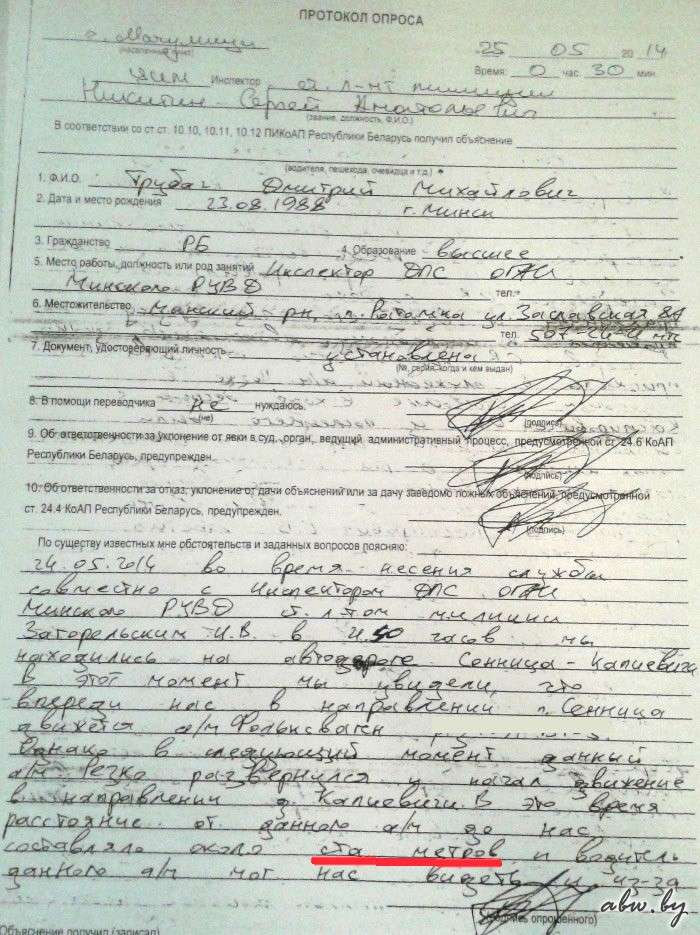 ПРОТОКОЛ ОПРОСА
г. Мачулищи 25 05 2014
(населенный пункт) Время: 0 час 30 мин.
Инспектор ст. л-нт милиции
Никитин Сергей Анатольевич
(звание, должность, Ф.И.О.)
В соответствии со ст.ст. 10.10, 10.11, 10.12 ПИКоАП Республики Беларусь получил объяснение
(водителя, пешехода, очевидца и т.д.)
1. Ф.И.О. Трубач Дмитрий Михайлович
2. Дата и место рождения 23.08.1988 г. Минск
3. Гражданство РБ 4. Образование высшее
5. Место работы, должность или род занятий Инспектор ДПС ОГАИ
Минского РУВД тел.
6. Местожительство Минский р-н, ул. Заславская
тел.
7. Документ, удостоверяющий личность установлена
(№, серия, когда и кем выдан)
8. В помощи переводчика не нуждаюсь.
(не) (подпись)
9. Об ответственности за уклонение от явки в суд, орган, ведущий административный процесс, предусмотренной ст. 24.6 КоАП
Республики Беларусь, предупрежден.
(подпись)
10. Об ответственности за отказ, уклонение от дачи объяснений или за дачу заведомо ложных объяснений, предусмотренной
ст. 24.4 КоАП Республики Беларусь, предупрежден.
(подпись)
По существу известных мне обстоятельств и заданных вопросов поясняю:
24.05.2014 во время несения службы
совместно с Инспектором ДПС ОГАИ
Минского РУВД ст. л-том милиции
Загорельским И.В. в часов мы
находились на автодороге Сенница-Капиевичи
В этот момент мы увидели, что
впереди нас в направлении п. Сенница
движется а/м Фольксваген
Однако в следующий момент данный
а/м резко развернулся и начал движение
в направлении д. Капиевичи. В это время
расстояние от данного а/м до нас
составляло около ста метров и водитель
данного а/м мог нас видеть и из-за
(подпись опрошенного)
Объяснение получил (записал)
abw.by